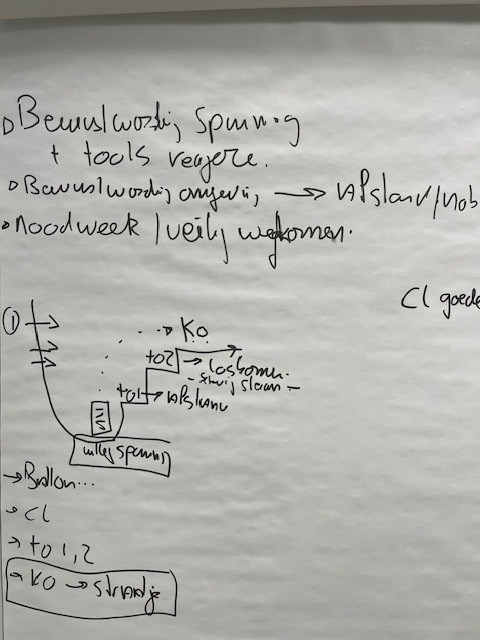 Bewustwording Spanning
+ tools reageren.
Bewustwording omgeving → Afstand/nob
Noodweer / veilig wegkomen.
Cl goede
1 → K.O.
to2 → Loskomen.
to1 → Afstand
→ Ballon...
→ Cl
→ to 1,2
→ KO → Strandje